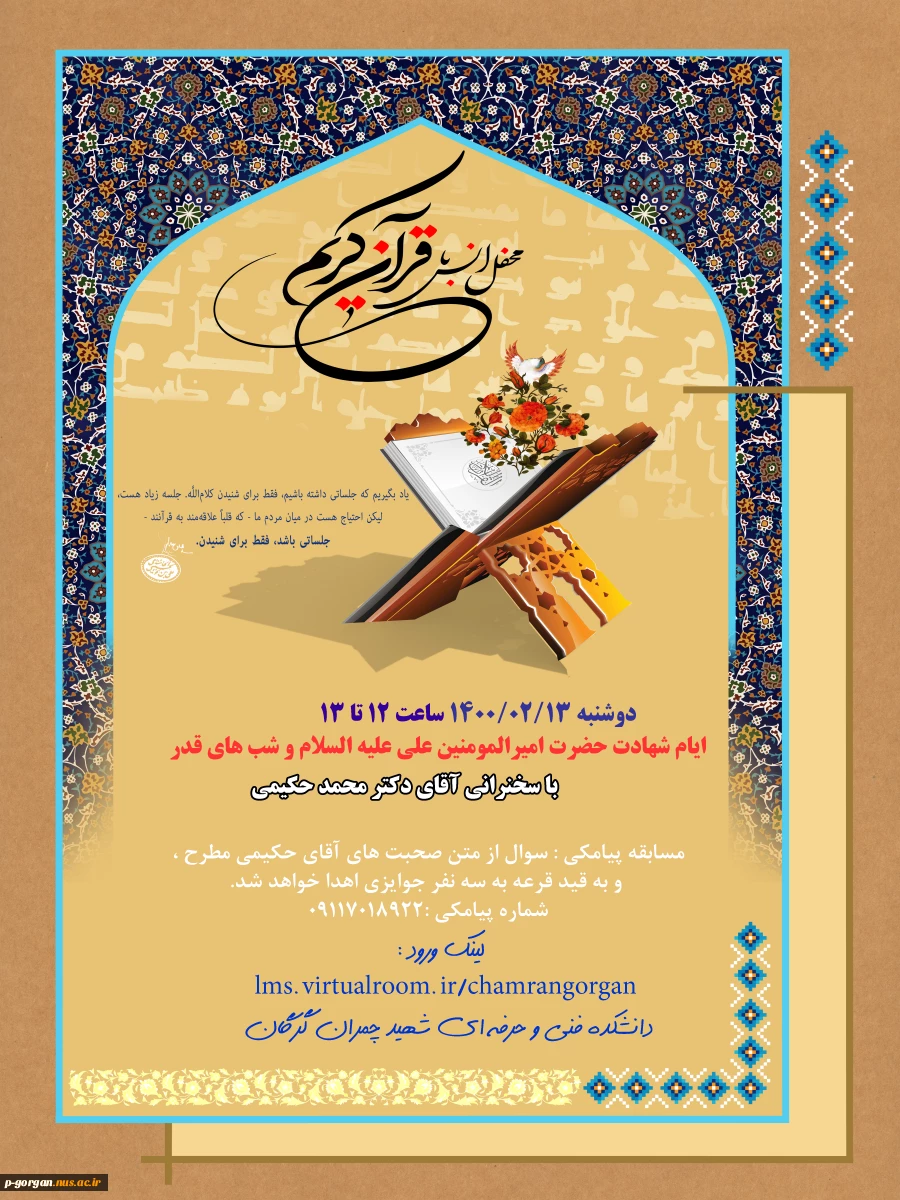 محفل انس با قرآن کریم
یاد بگیریم که جلساتی داشته باشیم، فقط برای شنیدن کلام‌الله. جلسه زیاد هست،
لیکن احتیاج هست در میان مردم ما - که قلباً علاقه‌مند به قرآنند -
جلساتی باشد، فقط برای شنیدن.
دوشنبه ۱۴۰۰/۰۲/۱۳ ساعت ۱۲ تا ۱۳
ایام شهادت حضرت امیرالمومنین علی علیه السلام و شب های قدر
با سخنرانی آقای دکتر محمد حکیمی
مسابقه پیامکی : سوال از متن صحبت های آقای حکیمی مطرح ،
و به قید قرعه به سه نفر جوایزی اهدا خواهد شد.
شماره پیامکی :۰۹۱۱۷۰۱۸۹۲۲
لینک ورود :
lms.virtualroom.ir/chamrangorgan
دانشکده فنی و حرفه‌ای شهید چمران گرگان
p-gorgan.nus.ac.ir